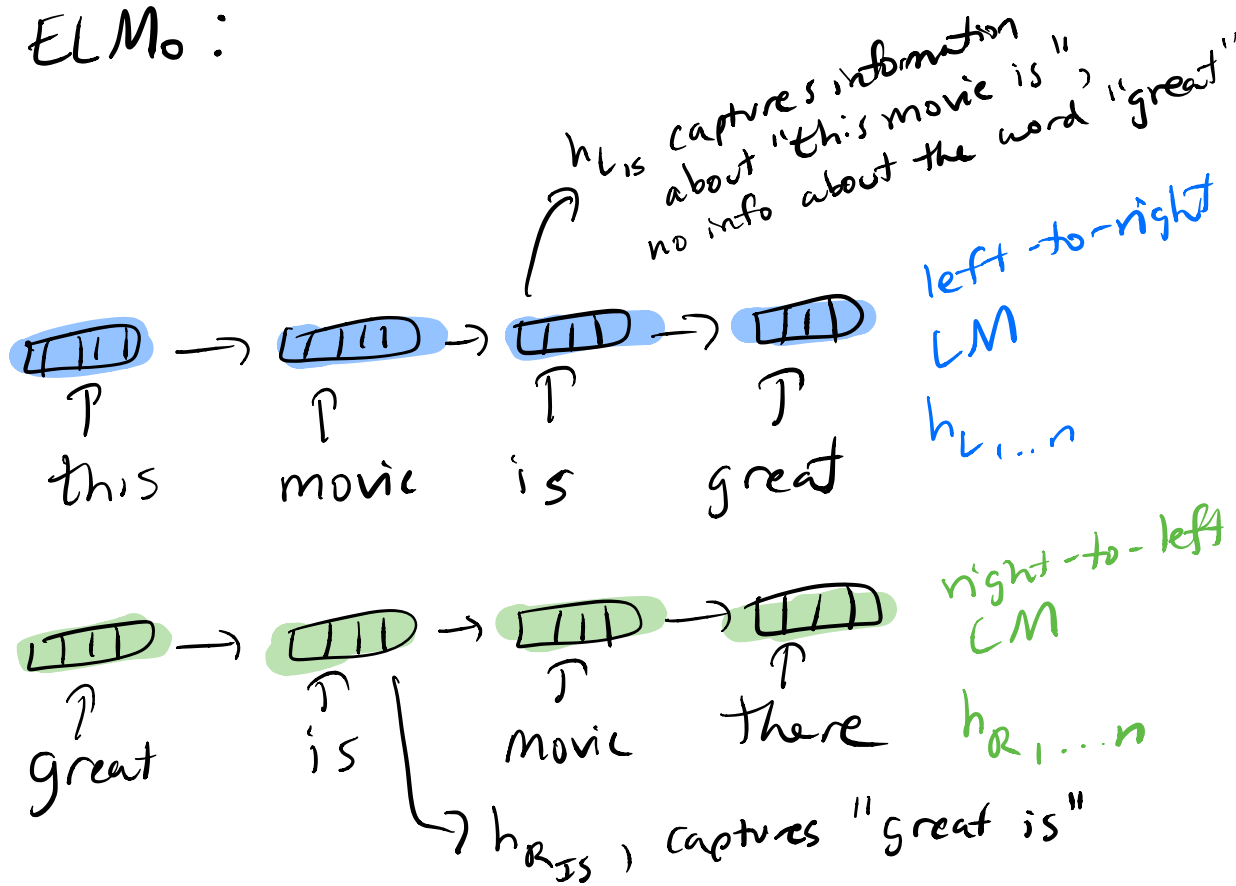 ELMo :
h_L_is captures information
about "this movie is",
no info about the word "great"
left-to-right
LM
h_L 1...n
this movie is great
right-to-left
LM
h_R 1...n
great is movie there
h_R_Is , captures "great is"